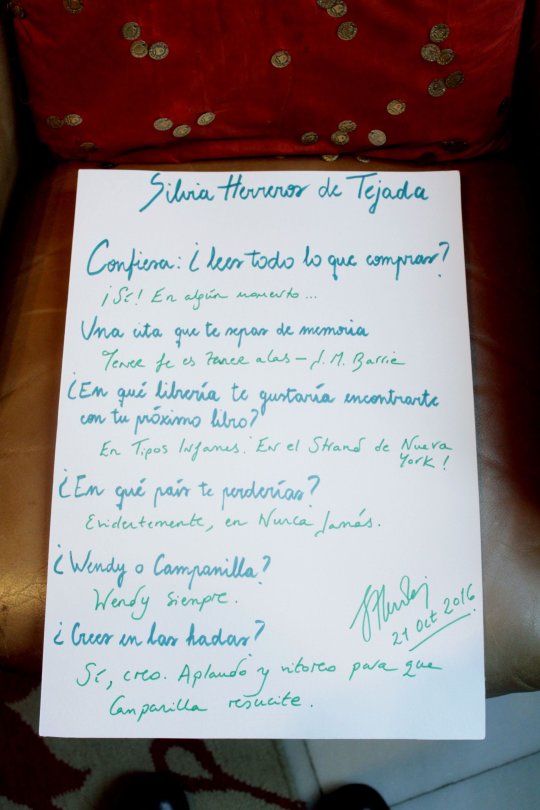 Silvia Herreros de Tejada
Confiesa: ¿lees todo lo que compras?
¡Sí! En algún momento...
Una cita que te sepas de memoria
Tener fe es tener alas – J. M. Barrie
¿En qué librería te gustaría encontrarte
con tu próximo libro?
En Tipos Infames. En el Strand de Nueva
York!
¿En qué país te perderías?
Evidentemente, en Nunca Jamás.
¿Wendy o Campanilla?
Wendy siempre.
¿Crees en las hadas?
Sí, creo. Aplaudo y vitoreo para que
Campanilla resucite.
21 Oct 2016